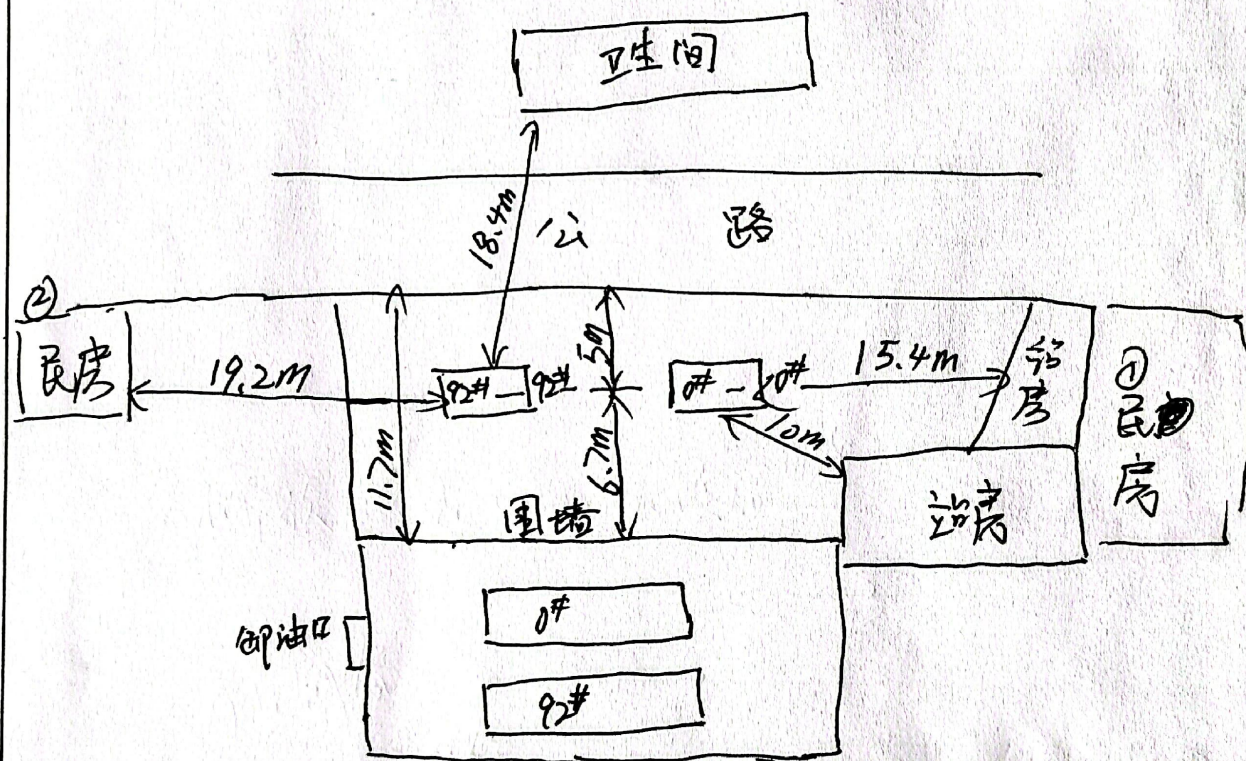 卫生间
18.4m
公 路
②
民房
19.2m
92#
92#
5m
0#
0#
15.4m
站房
①
民房
11.7m
6.7m
10m
围墙
站房
卸油口
0#
92#